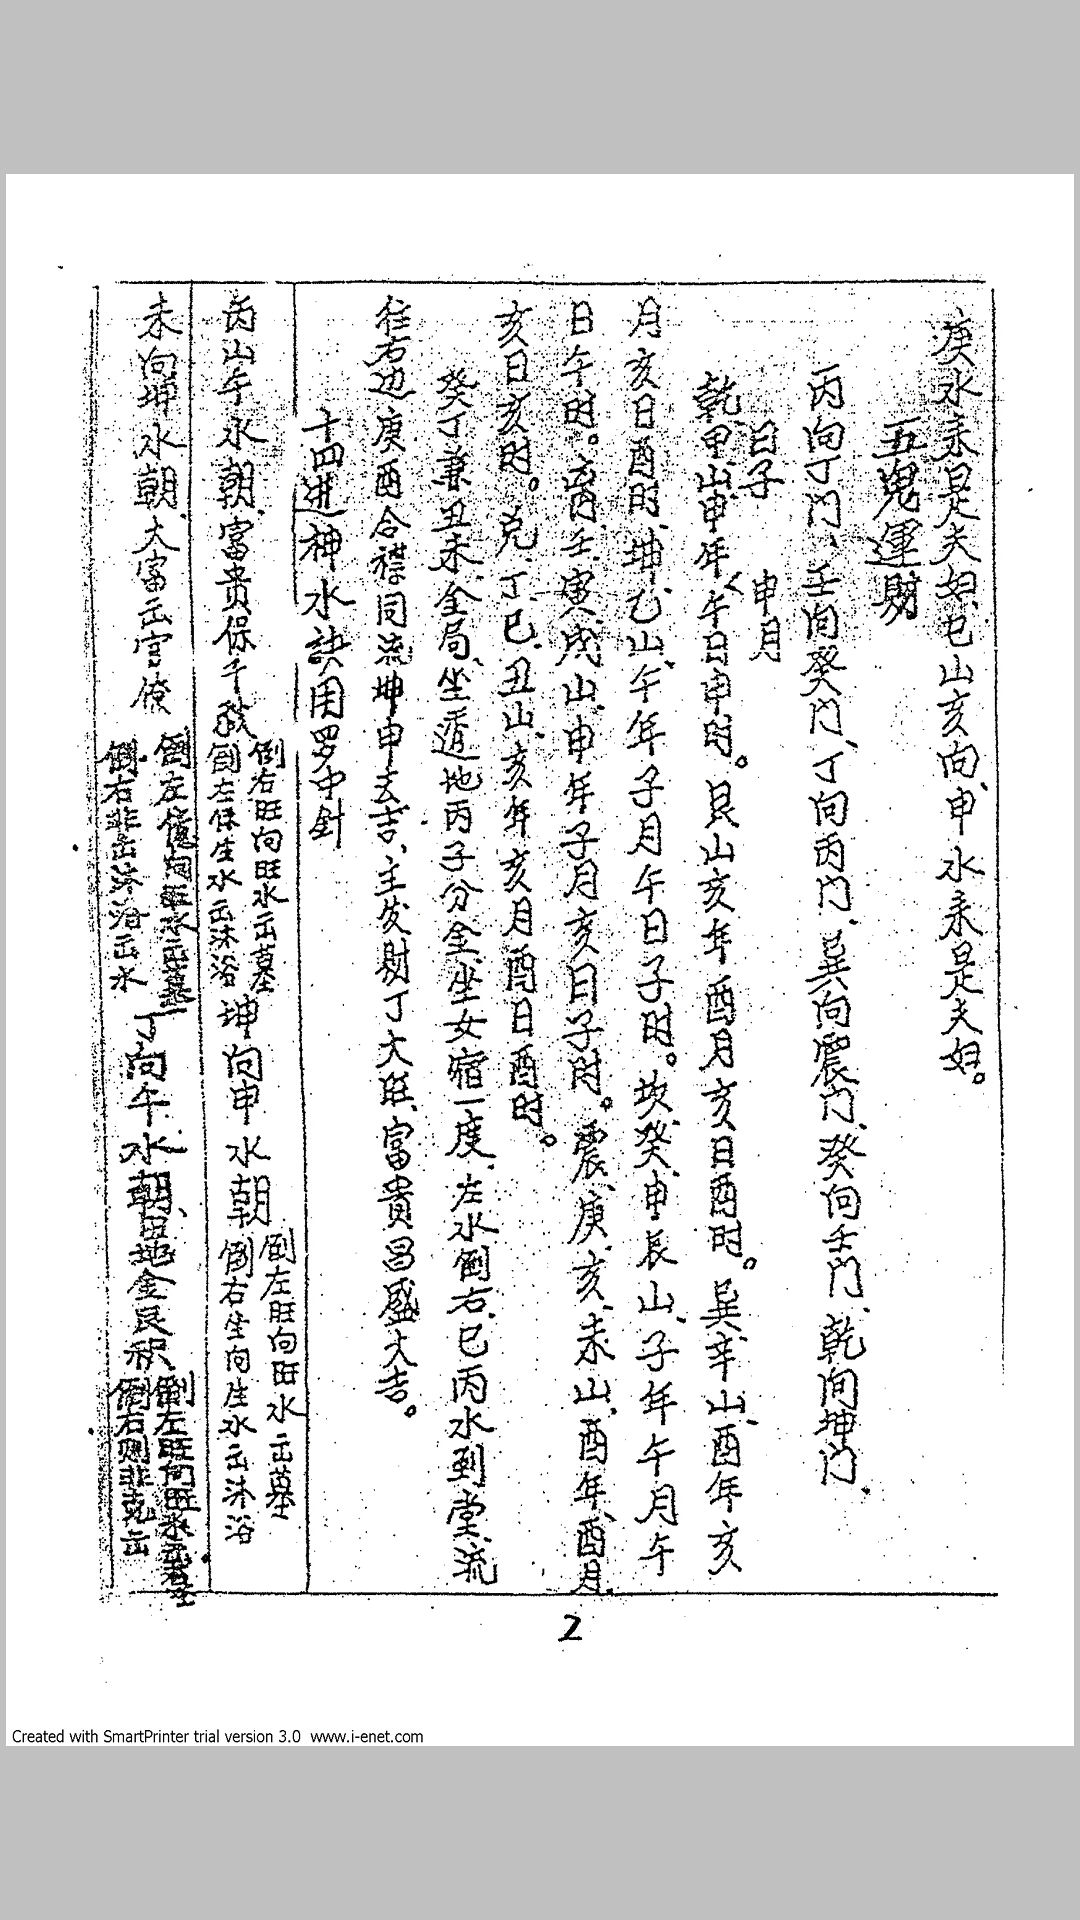 庚水来是夫妇、巳山亥向、申水来是夫妇。
五鬼運財
丙向丁门、壬向癸门、丁向丙门、巽向震门、癸向壬门、乾向坤门、
日子 申月
乾甲山、申年、午日申时。艮山亥年酉月亥日酉时。巽、辛山、酉年亥
月亥日酉时、坤、乙山、午年子月午日子时。坎、癸、申辰山、子年午月午
日午时。离、壬、寅、戌山、申年子月亥日子时。震、庚、亥、未山、酉年、酉月
亥日亥时。兑、丁、巳、丑山、亥年亥月酉日酉时。
癸丁兼丑未、全局、坐遁地丙子分金、坐女宿一度、左水倒右、巳丙水到堂、流
往右边庚酉合襟同流坤申去吉、主发財丁大旺、富貴昌盛大吉。
十四进神水訣用罗中針
丙山午水朝、富贵保千秋
倒右旺向旺水出墓
倒左休生水出沐浴
坤向申水朝
倒左旺向旺水出墓
倒右生向生水出沐浴
未向坤水朝、大富出官僚
倒右非出沐浴出水
丁向午水朝、
倒左旺向旺水出墓
2
Created with SmartPrinter trial version 3.0 www.i-enet.com